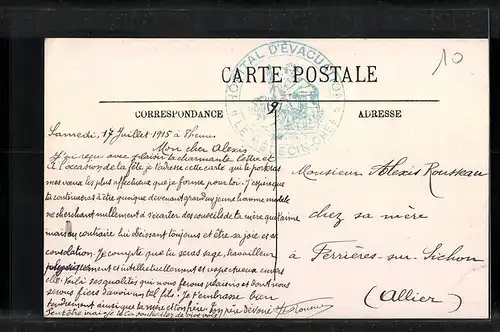 10
HÔPITAL D'ÉVACUATION
LE MÉDECIN-CHEF
CARTE POSTALE
CORRESPONDANCE
ADRESSE
Samedi, 17 Juillet 1915 à 8 heures
Mon cher Alexis
J'ai reçu avec plaisir ta charmante lettre et
à l'occasion de ta fête je t'adresse cette carte qui te portera
mes vœux les plus affectueux que je forme pour toi. J'espère que
tu continueras à être devenant grand un jeune homme modèle
ne cherchant nullement à s'écarter des conseils de ta mère qui t'aime
mais au contraire lui obéissant toujours et être sa joie et sa
consolation. Je compte que tu seras sage, travailleur
physiquement et intellectuellement et respectueux envers
elle. Voilà ses qualités qui nous feront plaisir et dont nous
serons fiers d'avoir un tel fils. Je t'embrasse bien
tendrement ainsi que ta mère et ton frère. Ton père dévoué
Peut-être vrai je te la souhaiterai de vive voix!
Monsieur Alexis Rousseau
chez sa mère
à Ferrières-sur-Sichon
(Allier)